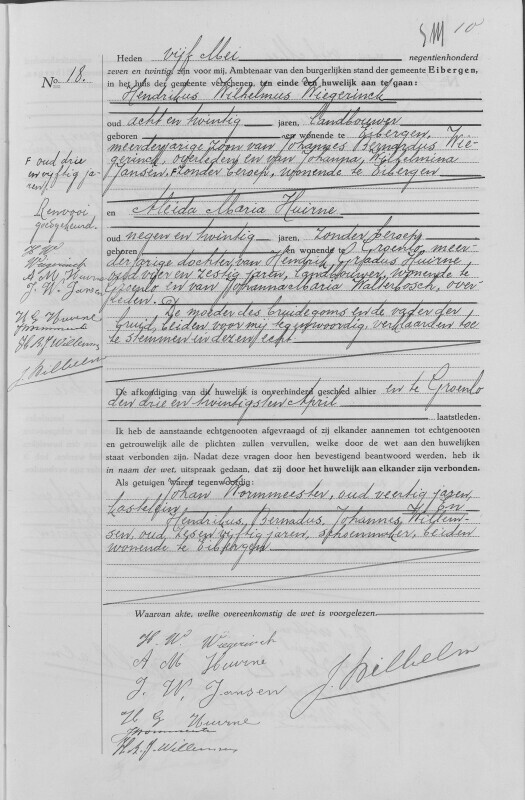 10
No. 18.
Heden vijf Mei negentienhonderd
zeven en twintig, zijn voor mij, Ambtenaar van den burgerlijken stand der gemeente Eibergen,
in het huis der gemeente verschenen, ten einde een huwelijk aan te gaan:
Hendrikus Wilhelmus Wiegerinck
oud acht en twintig jaren, Landbouwer
geboren en wonende te Eibergen,
meerderjarige zoon van Johannes Bernardus Wie-
gerinck, overleden en van Johanna Wilhelmina
Jansen, F zonder beroep, wonende te Eibergen
F oud drie
en vijftig ja-
ren
Renvooi
goedgekeurd.
H W
Wiegerinck
A M Huirne
J. W. Jansen
H G Huirne
H B J Willems
J Wilhelm
en Aleida Maria Huirne
oud negen en twintig jaren, zonder beroep
geboren en wonende te Groenlo, meer-
derjarige dochter van Hendrik Gradus Huirne
oud vier en zestig jaren, Landbouwer, wonende te
Groenlo en van Johanna Maria Walterbosch, over-
leden.
De moeder des bruidegoms en de vader der
bruid, beiden voor mij tegenwoordig, verklaarden toe
te stemmen in dezen echt.
De afkondiging van dit huwelijk is onverhinderd geschied alhier en te Groenlo
den drie en twintigsten April
laatstleden.
Ik heb de aanstaande echtgenooten afgevraagd of zij elkander aannemen tot echtgenooten
en getrouwelijk alle de plichten zullen vervullen, welke door de wet aan den huwelijken
staat verbonden zijn. Nadat deze vragen door hen bevestigend beantwoord werden, heb ik
in naam der wet, uitspraak gedaan, dat zij door het huwelijk aan elkander zijn verbonden.
Als getuigen waren tegenwoordig:
Johan Wormmeester, oud veertig jaren,
kastelein En
Hendrikus, Bernadus, Johannes, Willem-
sen, oud zes en vijftig jaren, schoenmaker, beiden
wonende te Eibergen
Waarvan akte, welke overeenkomstig de wet is voorgelezen.
H. W. Wiegerinck
A M Huirne
J. W. Jansen
J. Wilhelm
H G Huirne
H. B. J. Willemsen